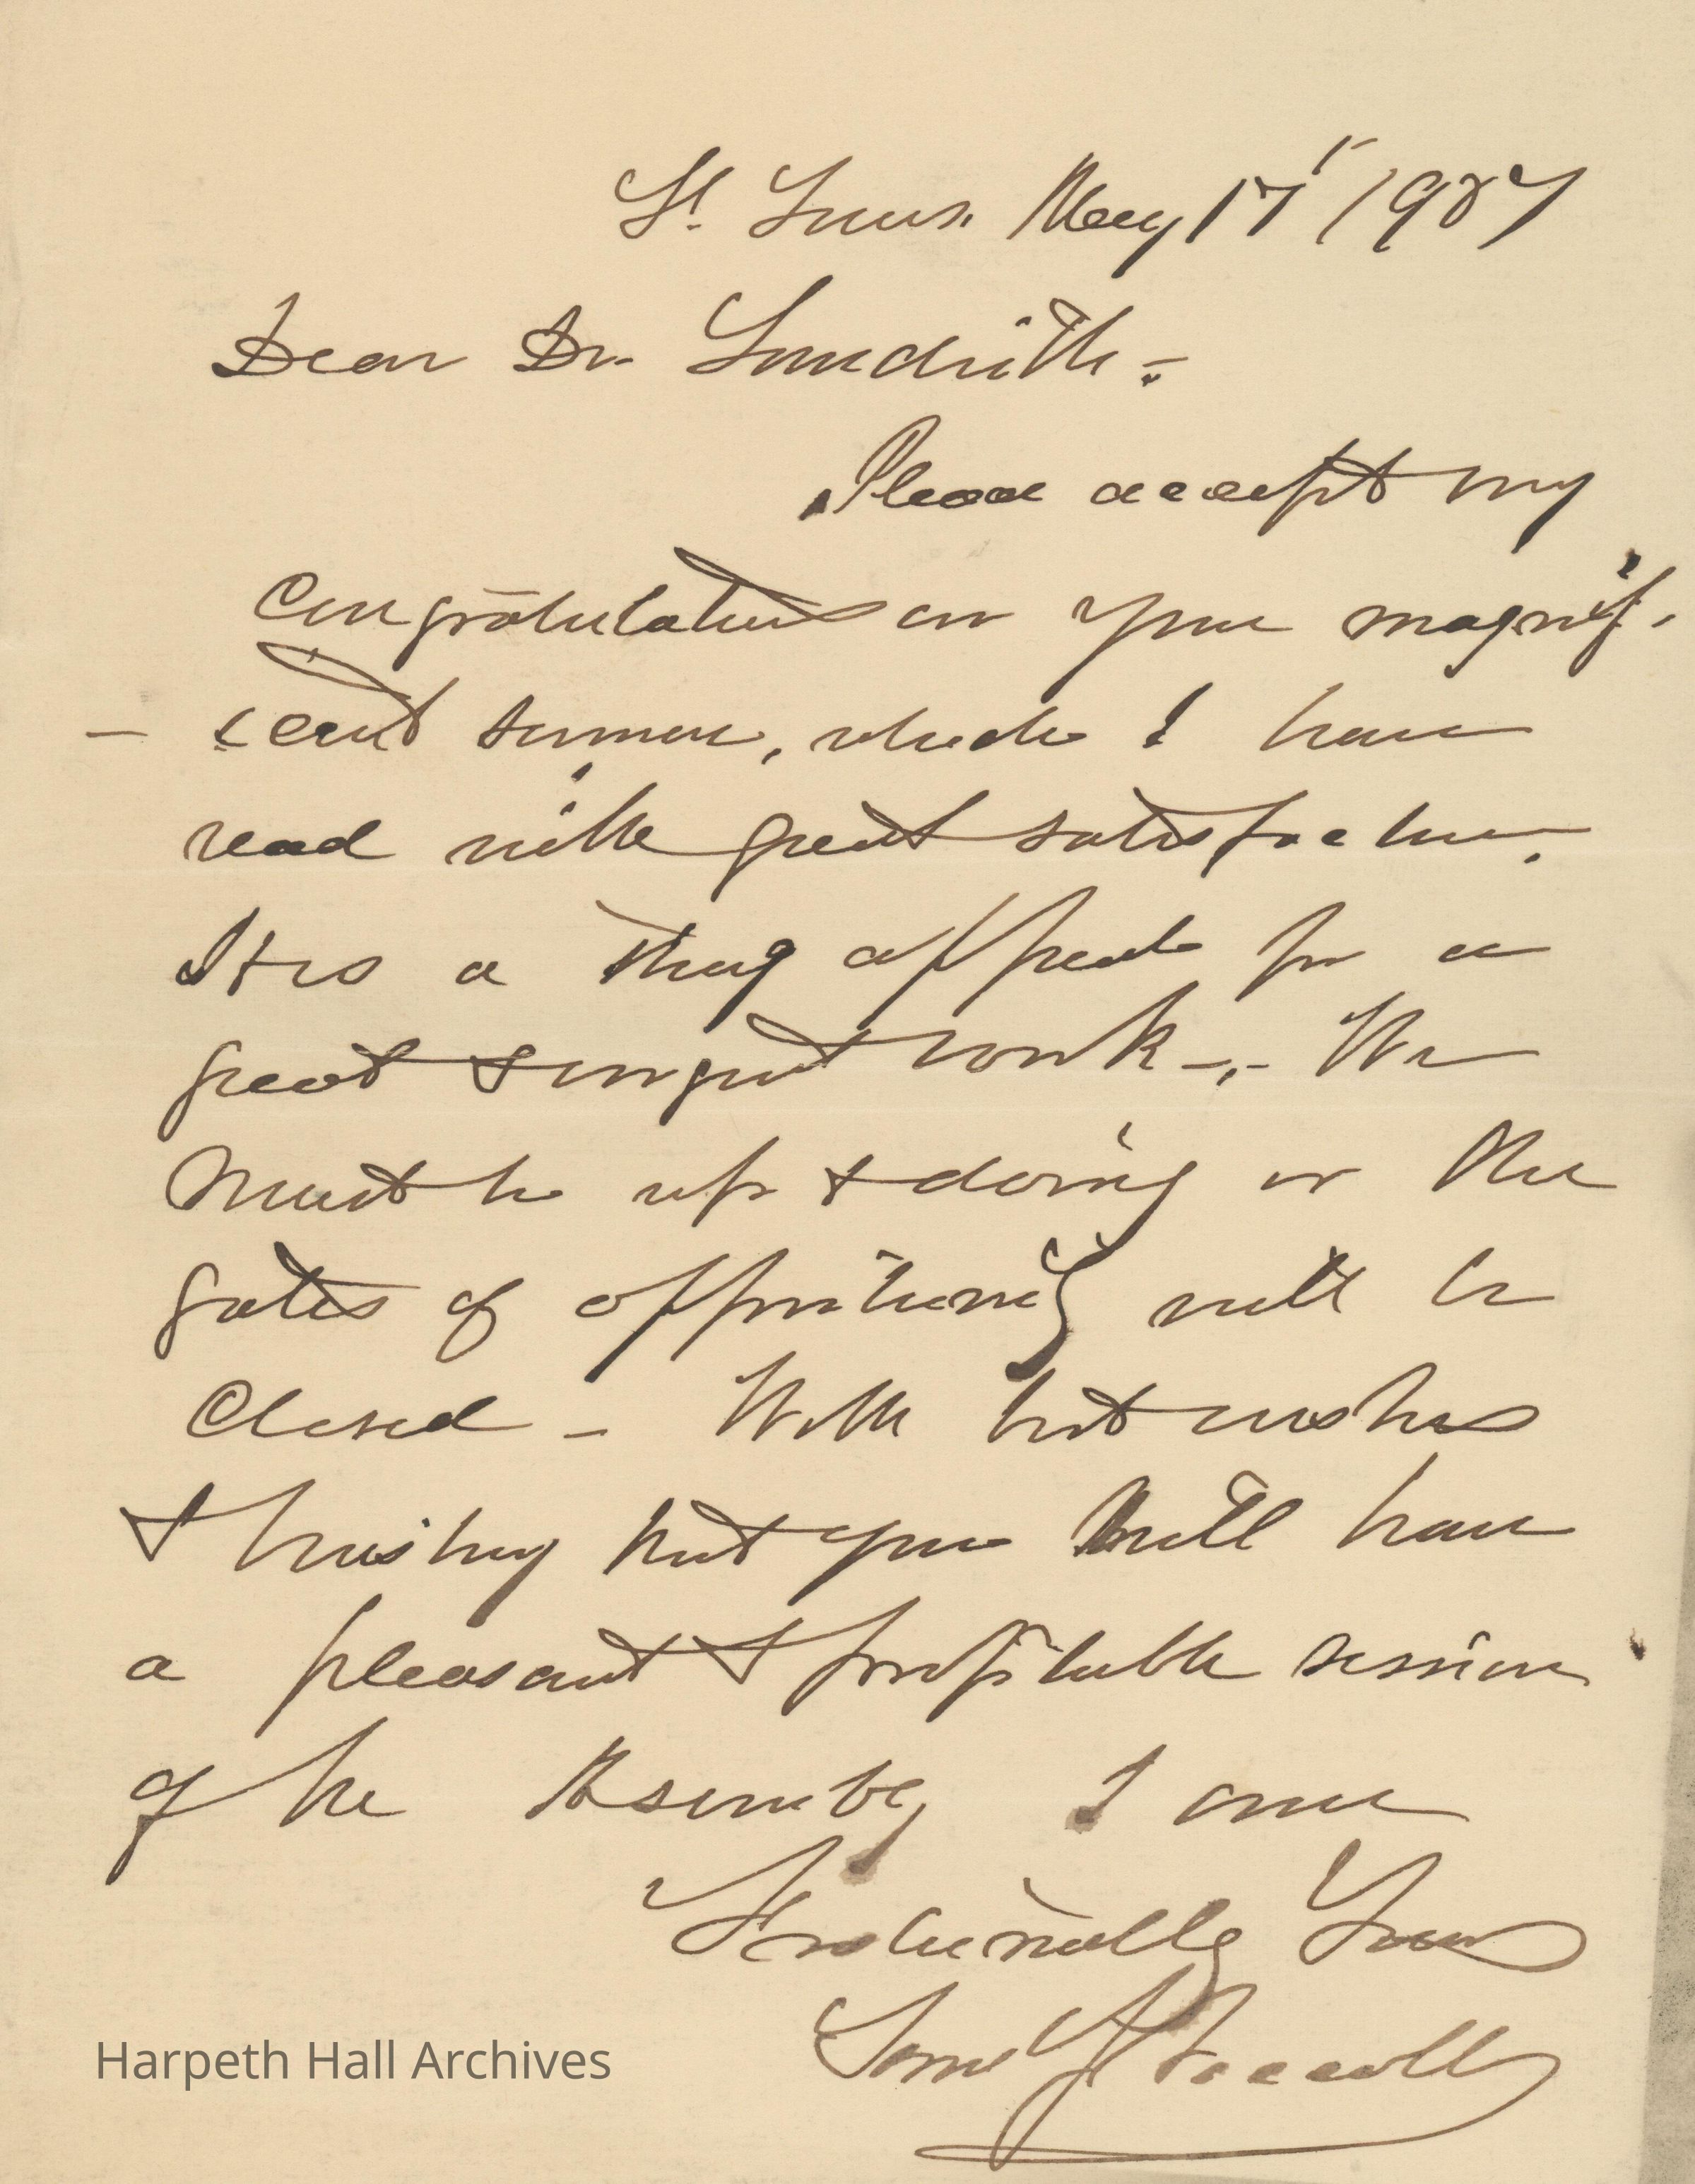 St. Louis. May 17" 1907
Dear Dr. Landrith :-
Please accept my
congratulations on your magnif-
- icent sermon, which I have
read with great satisfaction.
It is a strong appeal for a
great & urgent work -.- We
must be up & doing or the
gates of opportunity will be
closed - With best wishes
& trusting that you will have
a pleasant & profitable session
of the Assembly I am
Fraternally Yours
Harpeth Hall Archives